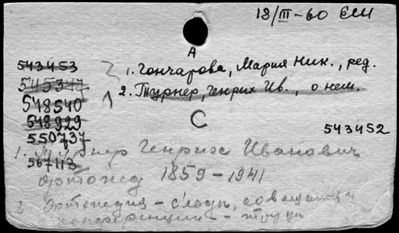 18/III-60 ЕСИ
А
543453
1. Гончарова, Мария Ник., ред.
545347
2. Турнер, Генрих Ив., о нем.
548540
С
548929
543452
550737
1. Турнер Генрих Иванович
567113
ортопед 1859-1941
2. Ортопедия - съезды, совещания
конференции - труды